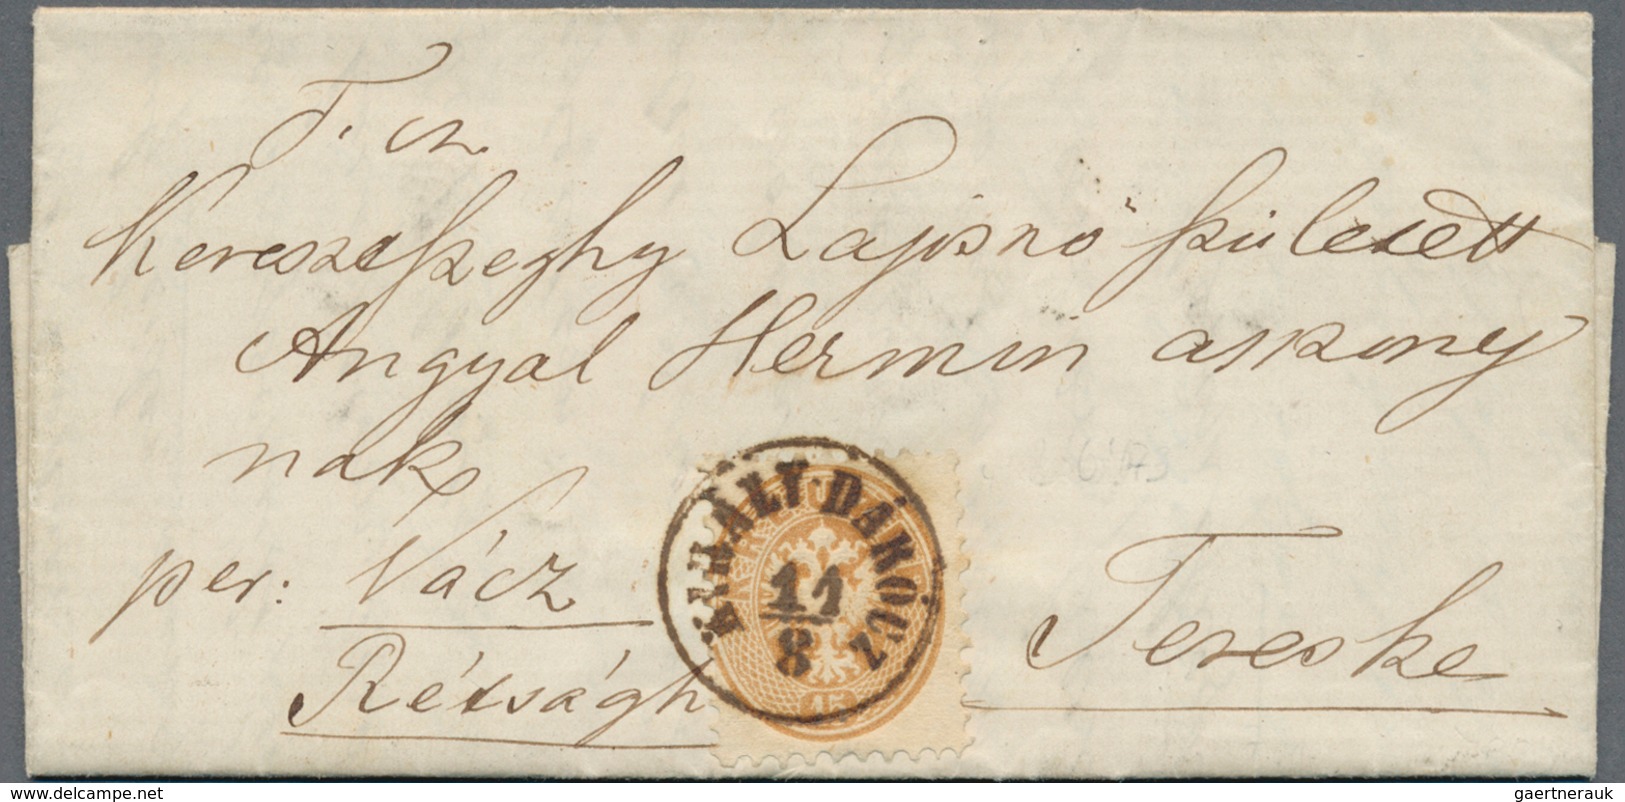 T. cz.
Keresztszeghy Lajosnő született
Angyal Hermin asszony
nak
per: Vácz
Rétságh
Tereske
KIRÁLY·DARÓCZ
11
8
15
www.delcampe.net
gaertnerauk